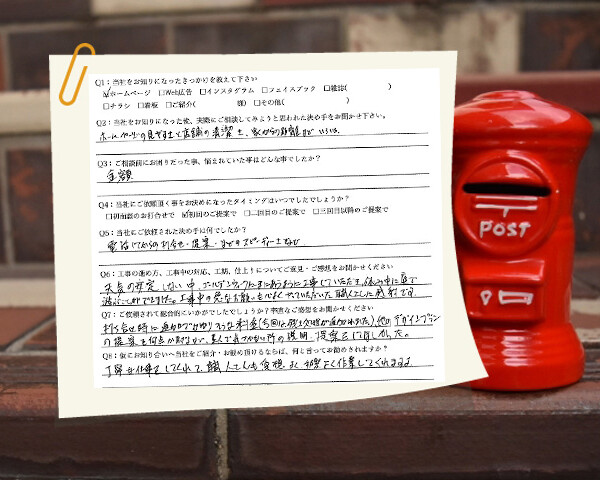 Q1：当社をお知りになったきっかけを教えて下さい
☑ホームページ □Web広告 □インスタグラム □フェイスブック □雑誌( )
□チラシ □看板 □ご紹介( 様) □その他( )
Q2：当社をお知りになった後、実際にご相談してみようと思われた決め手をお聞かせ下さい。
ホームページの見やすさと店舗の清潔さ、家からの距離など
Q3：ご相談前にお困りだった事、悩まれていた事はどんな事でしたか？
金額
Q4：当社にご依頼頂く事をお決めになったタイミングはいつでしたでしょうか？
□初面談のお打合せで ☑初回のご提案で □二回目のご提案で □三回目以降のご提案で
Q5：当社にご依頼された決め手は何でしたか？
電話してからの打合せ・提案・などのスピーディーさなど
Q6：工事の進め方、工事中の対応、工期、仕上りについてご意見・ご感想をお聞かせください
天気の安定しない中、ゴールデンウィークに
工事中の 職人さんに感謝です。
Q7：ご依頼されて総合的にいかがでしたでしょうか？率直なご感想をお聞かせください
打合せ時に 料金(今回は残土処理が追加された)他のデザインプラン
の提案も何点か 所の説明、提案 した。
Q8：仮にお知り合いへ当社をご紹介・お薦め頂けるならば、何と言ってお勧めされますか？
丁寧な仕事をしてくれて、職人さんも よく作業してくれますよ
POST